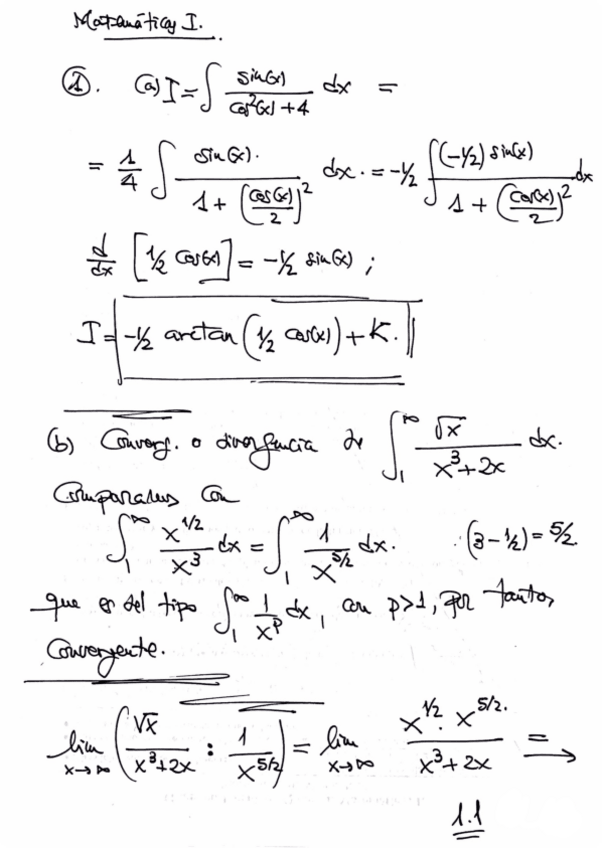 Matemáticas I.
①. (a) I = ∫ sin(x) / (cos²(x) + 4) dx =
= 1/4 ∫ sin(x). / (1 + (cos(x)/2)²) dx. = -1/2 ∫ (-1/2) sin(x) / (1 + (cos(x)/2)²) dx
d/dx [1/2 cos(x)] = -1/2 sin(x) ;
I = -1/2 arctan (1/2 cos(x)) + K.
(b) Converg. o divergencia de ∫₁^∞ √x / (x³ + 2x) dx.
Comparamos con
∫₁^∞ x^{1/2} / x³ dx = ∫₁^∞ 1 / x^{5/2} dx. (3 - 1/2) = 5/2
que es del tipo ∫₁^∞ 1/x^p dx, con p>1, por tanto,
Convergente.
lim x→∞ (√x / (x³ + 2x) : 1 / x^{5/2}) = lim x→∞ x^{1/2} · x^{5/2}. / (x³ + 2x) =→
1.1